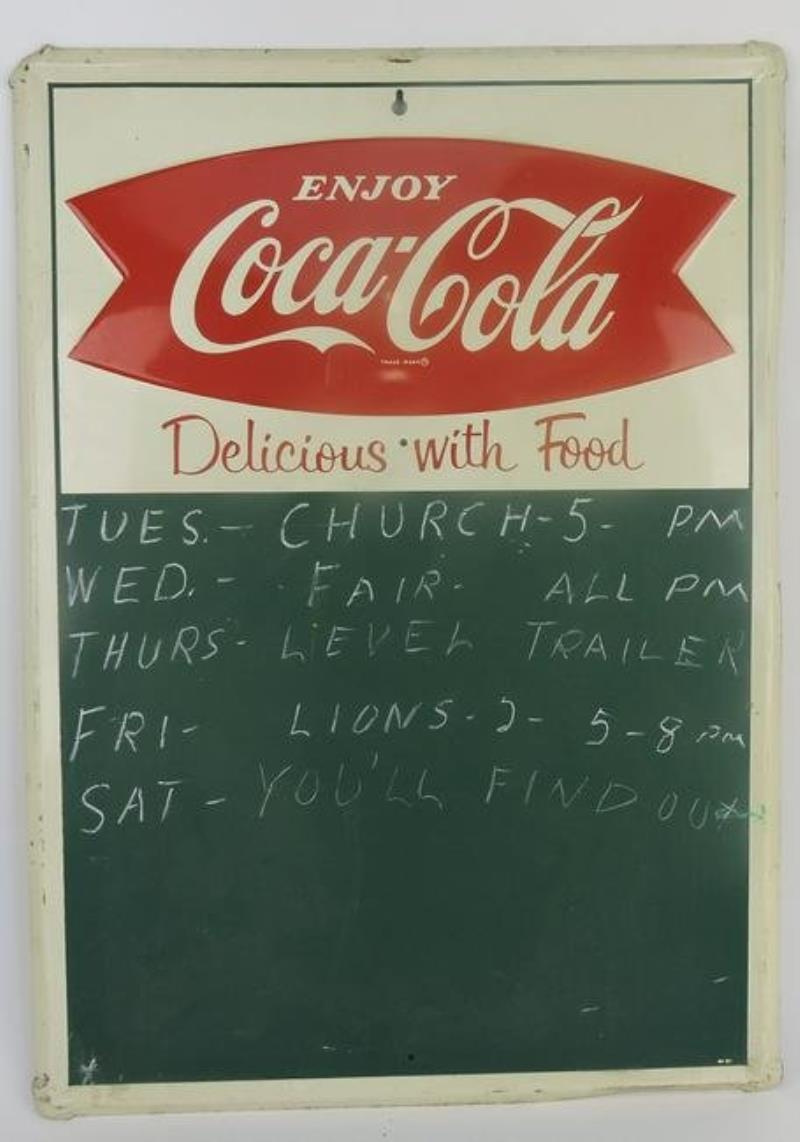 ENJOY
Coca-Cola
TRADE MARK ®
Delicious with Food
TUES. - CHURCH - 5 - PM
WED. - FAIR - ALL PM
THURS - LEVEL TRAILER
FRI - LIONS - 2 - 5 - 8 PM
SAT - YOU'LL FIND OUT